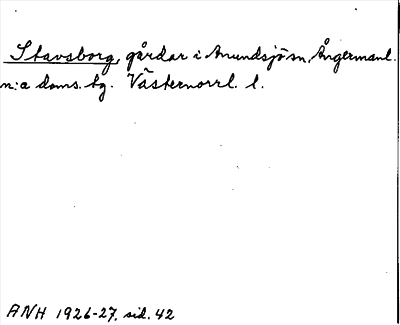 Stavsborg, gårdar i Anundsjö sn, Ångermanl.
n:a doms. tg. Västernorrl. l.
ANH 1926-27, sid. 42